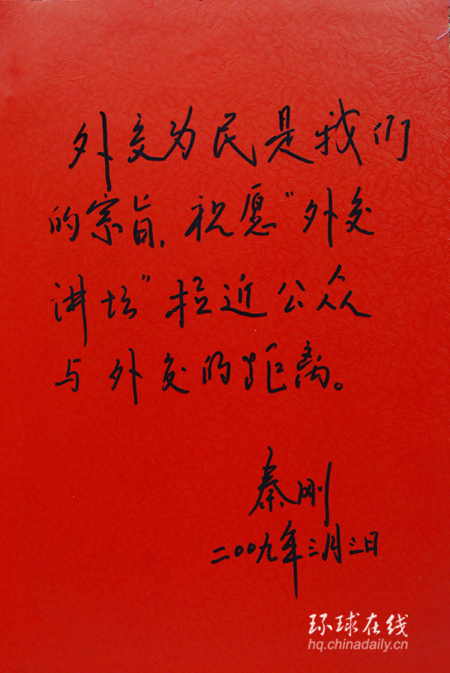 外交为民是我们
的宗旨，祝愿“外交
讲坛”拉近公众
与外交的距离。
秦刚
二〇〇九年三月三日
环球在线
hq.chinadaily.cn